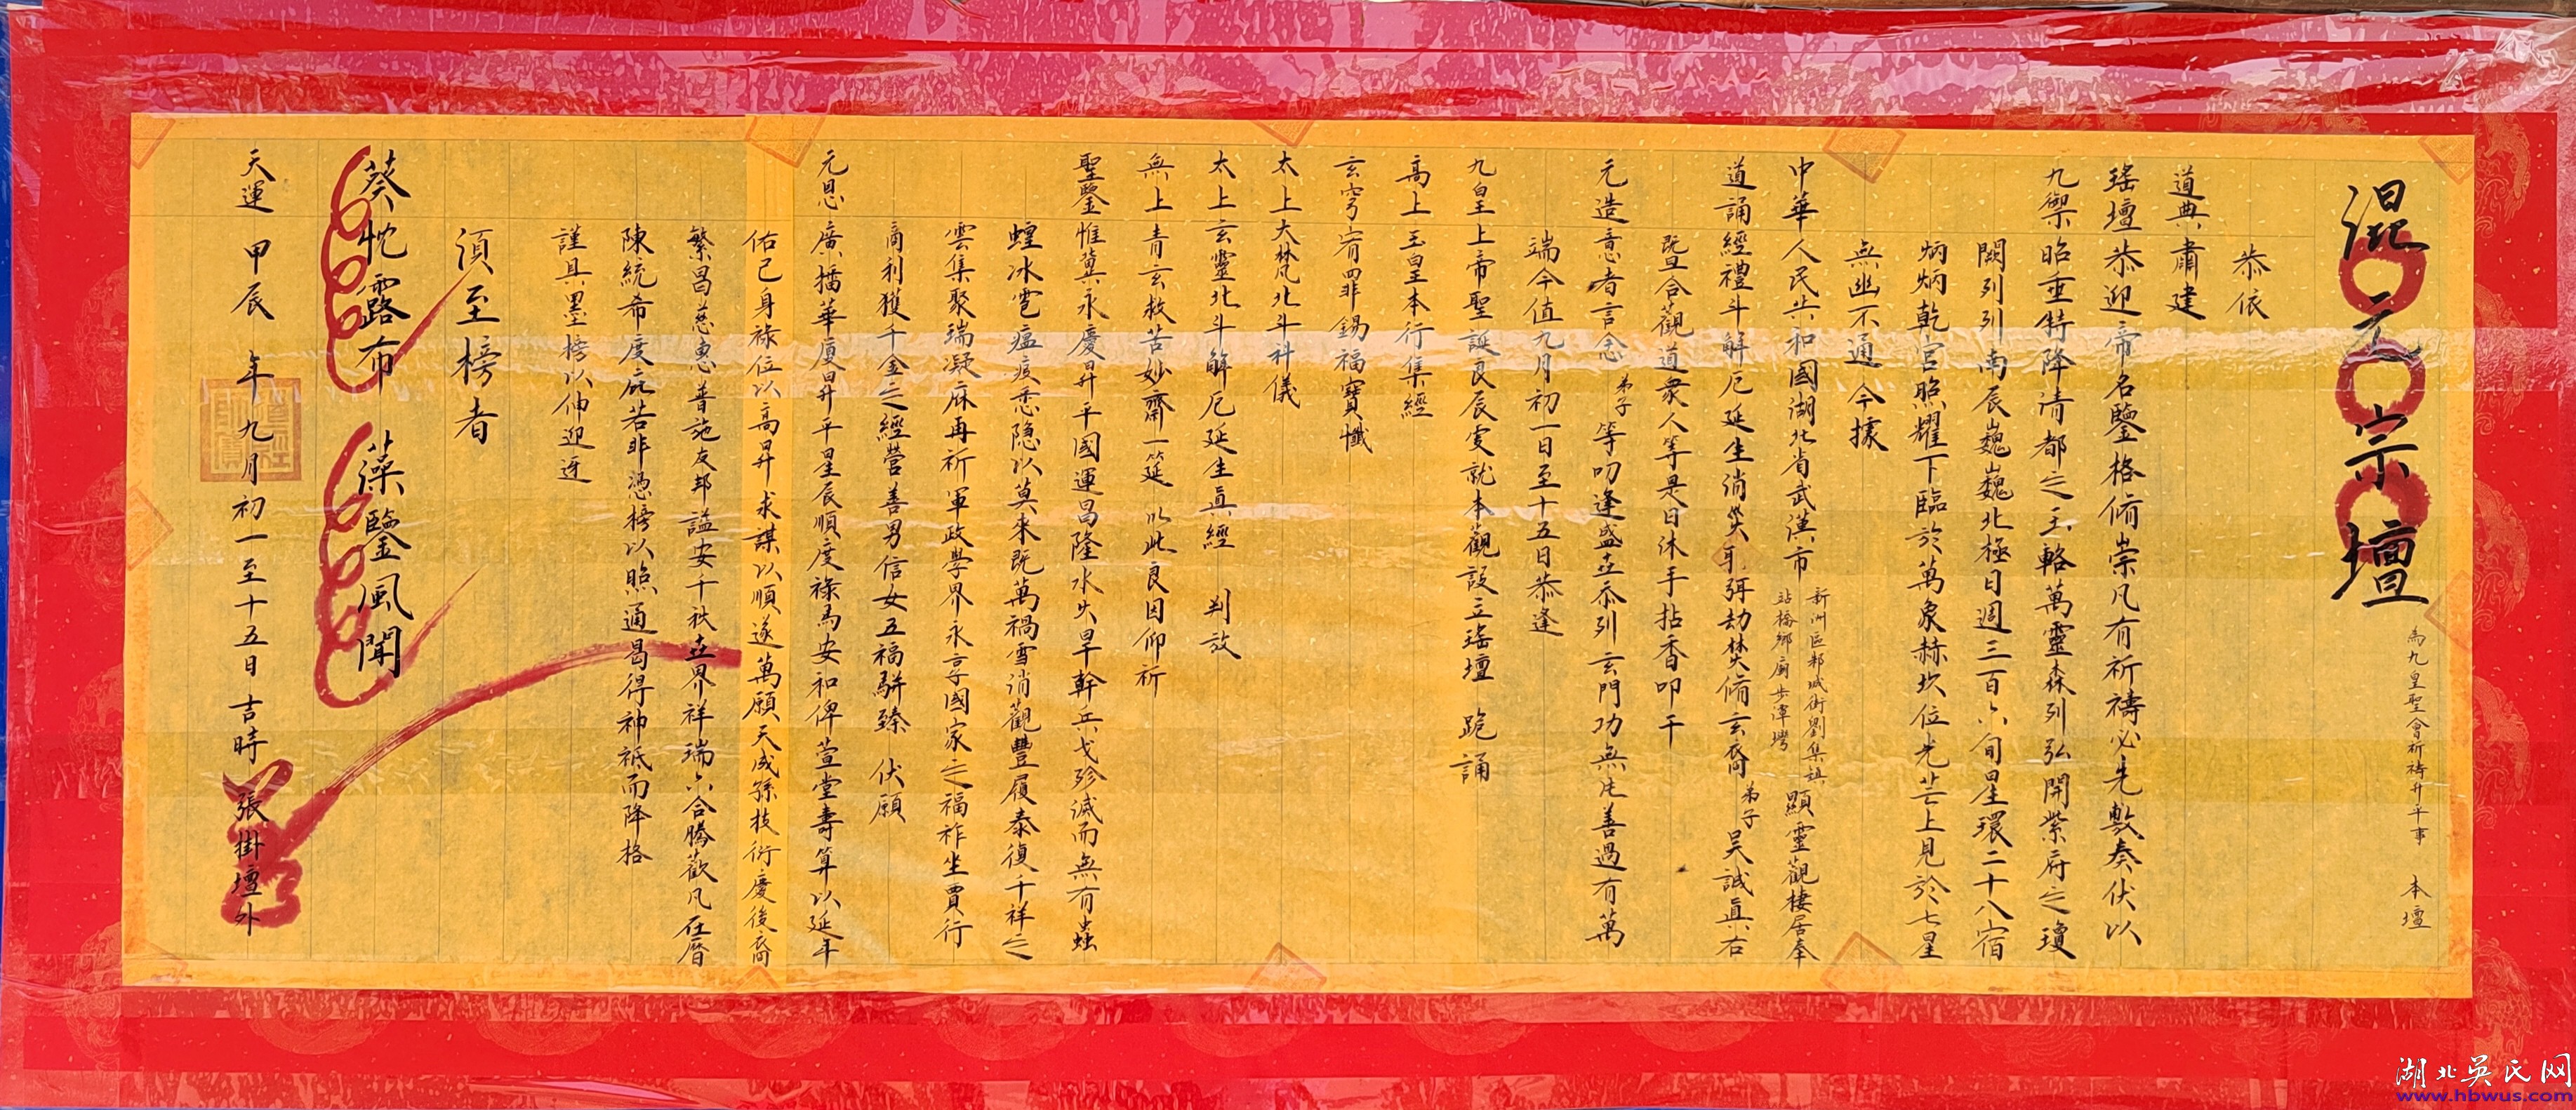 混元宗壇
為九皇聖會祈禱升平事 本壇
恭依
道典肅建
瑤壇恭迎帝名鑒格脩崇凡有祈禱必先敷奏伏以
九御昭垂特降清都之玉輅萬靈森列弘開紫府之瓊
闕列列南辰巍巍北極日週三百六旬星環二十八宿
炳炳乾宮照耀下臨於萬象赫赫坎位光芒上見於七星
無幽不通今據
中華人民共和國湖北省武漢市新洲區邾城街劉集鎮站橋鄉廟步潭灣顯靈觀棲居奉
道誦經禮斗解厄延生消災弭劫焚脩玄裔弟子吳誠真右
既暨合觀道衆人等是日沐手拈香叩干
元造意者言念弟子等叨逢盛世忝列玄門功無片善過有萬
端今值九月初一日至十五日恭逢
九皇上帝聖誕良辰虔就本觀設立瑤壇 跪誦
高上玉皇本行集經
玄穹宥罪錫福寶懺
太上大梵北斗科儀
太上玄靈北斗解厄延生真經 判放
無上青玄救苦妙齋一筵 以此良因仰祈
聖鑒惟冀永慶昇平國運昌隆水火旱幹兵戈殄滅而無有蟲
蝗冰雹瘟疫悉隐以莫來既萬禍雪消觀豐履泰復千祥之
雲集聚瑞凝庥再祈軍政學界永享國家之福祚坐賈行
商利獲千金之經營善男信女五福駢臻 伏願
元恩廣播華厦昇平星辰順度祿馬安和俾萱堂壽算以延年
佑己身祿位以高昇求謀以順遂萬願天成孫枝衍慶後裔
繁昌慈惠普施友邦謐安千秋世界祥瑞六合騰歡凡在曆
陳統希度庇若非憑榜以照通曷得神祗而降格
謹具墨榜以伸迎迓
須至榜者
葵忱露布 藻鑒風聞
天運 甲辰 年 九月 初一至十五日 吉時 張掛壇外
湖北吳氏网
www.hbwus.com